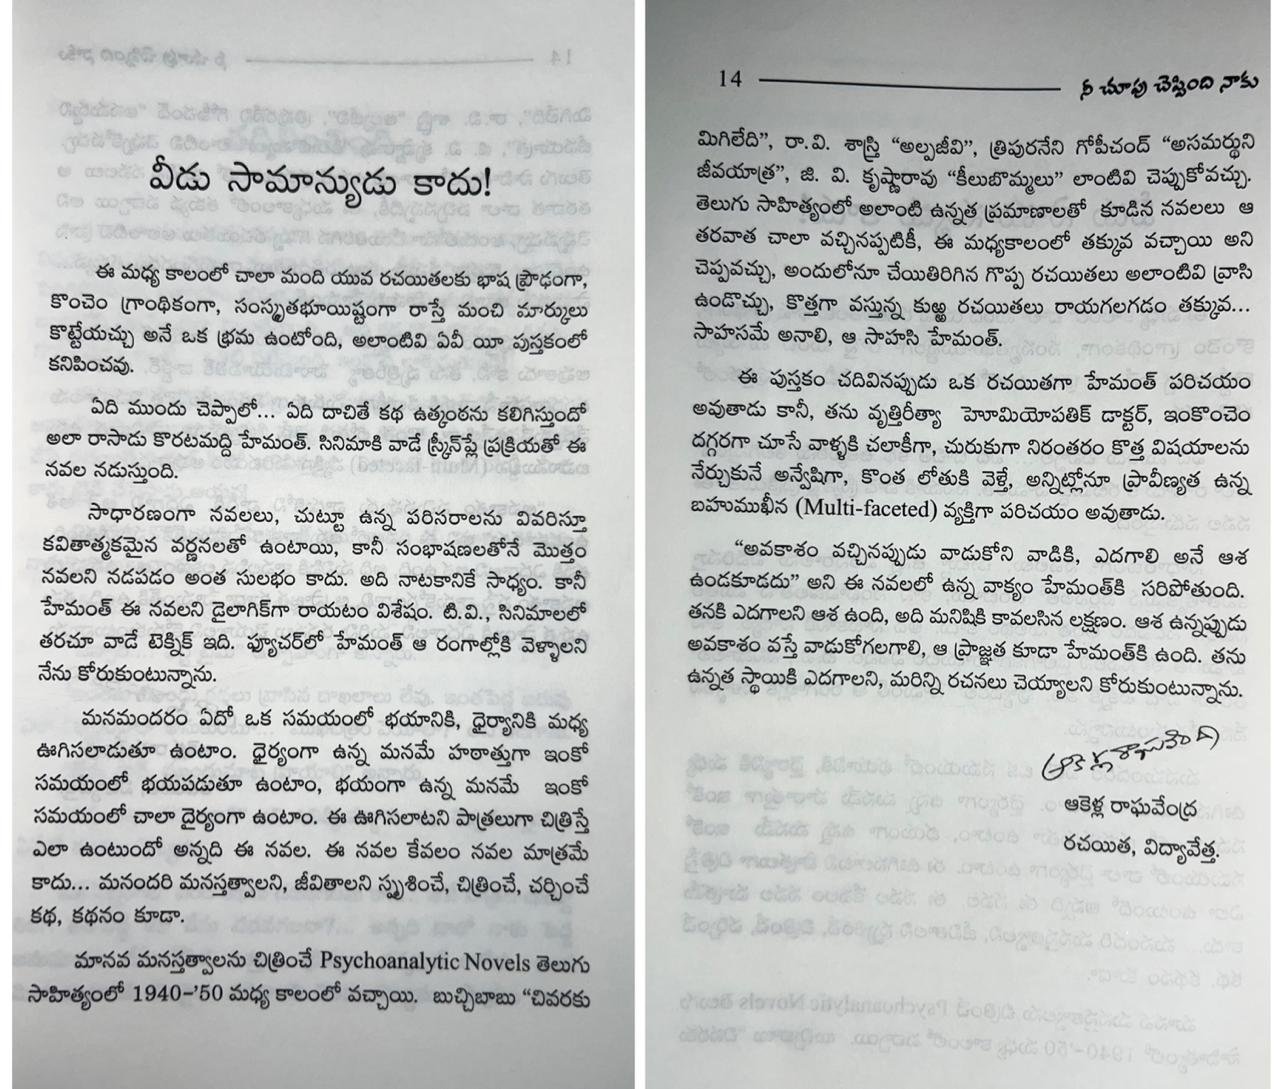 వీడు సామాన్యుడు కాదు!
ఈ మధ్య కాలంలో చాలా మంది యువ రచయితలకు భాష ప్రౌఢంగా,
కొంచెం గ్రాంథికంగా, సంస్కృతభూయిష్టంగా రాస్తే మంచి మార్కులు
కొట్టేయచ్చు అనే ఒక భ్రమ ఉంటోంది, అలాంటివి ఏవీ యీ పుస్తకంలో
కనిపించవు.
ఏది ముందు చెప్పాలో... ఏది దాచితే కథ ఉత్కంఠను కలిగిస్తుందో
అలా రాసాడు కొరటమద్ది హేమంత్. సినిమాకి వాడే స్క్రీన్‌ప్లే ప్రక్రియతో ఈ
నవల నడుస్తుంది.
సాధారణంగా నవలలు, చుట్టూ ఉన్న పరిసరాలను వివరిస్తూ
కవితాత్మకమైన వర్ణనలతో ఉంటాయి, కానీ సంభాషణలతోనే మొత్తం
నవలని నడపడం అంత సులభం కాదు. అది నాటకానికే సాధ్యం. కానీ
హేమంత్ ఈ నవలని డైలాగిక్‌గా రాయటం విశేషం. టి.వి., సినిమాలలో
తరచూ వాడే టెక్నిక్ ఇది. ఫ్యూచర్‌లో హేమంత్ ఆ రంగాల్లోకి వెళ్ళాలని
నేను కోరుకుంటున్నాను.
మనమందరం ఏదో ఒక సమయంలో భయానికి, ధైర్యానికి మధ్య
ఊగిసలాడుతూ ఉంటాం. ధైర్యంగా ఉన్న మనమే హఠాత్తుగా ఇంకో
సమయంలో భయపడుతూ ఉంటాం, భయంగా ఉన్న మనమే ఇంకో
సమయంలో చాలా ధైర్యంగా ఉంటాం. ఈ ఊగిసలాటని పాత్రలుగా చిత్రిస్తే
ఎలా ఉంటుందో అన్నది ఈ నవల. ఈ నవల కేవలం నవల మాత్రమే
కాదు... మనందరి మనస్తత్వాలని, జీవితాలని స్పృశించే, చిత్రించే, చర్చించే
కథ, కథనం కూడా.
మానవ మనస్తత్వాలను చిత్రించే Psychoanalytic Novels తెలుగు
సాహిత్యంలో 1940-'50 మధ్య కాలంలో వచ్చాయి. బుచ్చిబాబు “చివరకు
14 నీ చూపు చెప్పింది నాకు
మిగిలేది”, రా.వి. శాస్త్రి “అల్పజీవి”, త్రిపురనేని గోపీచంద్ “అసమర్థుని
జీవయాత్ర”, జి. వి. కృష్ణారావు “కీలుబొమ్మలు” లాంటివి చెప్పుకోవచ్చు.
తెలుగు సాహిత్యంలో అలాంటి ఉన్నత ప్రమాణాలతో కూడిన నవలలు ఆ
తరవాత చాలా వచ్చినప్పటికీ, ఈ మధ్యకాలంలో తక్కువ వచ్చాయి అని
చెప్పవచ్చు, అందులోనూ చేయితిరిగిన గొప్ప రచయితలు అలాంటివి వ్రాసి
ఉండొచ్చు, కొత్తగా వస్తున్న కుఱ్ఱ రచయితలు రాయగలగడం తక్కువ...
సాహసమే అనాలి, ఆ సాహసి హేమంత్.
ఈ పుస్తకం చదివినప్పుడు ఒక రచయితగా హేమంత్ పరిచయం
అవుతాడు కానీ, తను వృత్తిరీత్యా హెూమియోపతిక్ డాక్టర్, ఇంకొంచెం
దగ్గరగా చూసే వాళ్ళకి చలాకీగా, చురుకుగా నిరంతరం కొత్త విషయాలను
నేర్చుకునే అన్వేషిగా, కొంత లోతుకి వెళ్తే, అన్నిట్లోనూ ప్రావీణ్యత ఉన్న
బహుముఖీన (Multi-faceted) వ్యక్తిగా పరిచయం అవుతాడు.
“అవకాశం వచ్చినప్పుడు వాడుకోని వాడికి, ఎదగాలి అనే ఆశ
ఉండకూడదు” అని ఈ నవలలో ఉన్న వాక్యం హేమంత్‌కి సరిపోతుంది.
తనకి ఎదగాలని ఆశ ఉంది, అది మనిషికి కావలసిన లక్షణం. ఆశ ఉన్నప్పుడు
అవకాశం వస్తే వాడుకోగలగాలి, ఆ ప్రాజ్ఞత కూడా హేమంత్‌కి ఉంది. తను
ఉన్నత స్థాయికి ఎదగాలని, మరిన్ని రచనలు చెయ్యాలని కోరుకుంటున్నాను.
ఆకెళ్ల రాఘవేంద్ర
రచయిత, విద్యావేత్త.